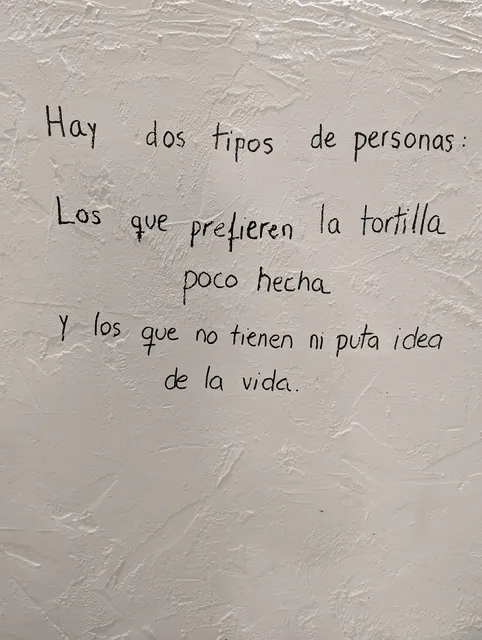 Hay dos tipos de personas:
Los que prefieren la tortilla
poco hecha
y los que no tienen ni puta idea
de la vida.